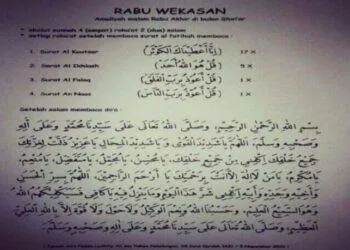 RABU WEKASAN
Amaliyah malam Rabu Akhir di bulan Shafar
sholat sunnah 4 (empat) roka'at 2 (dua) salam
setiap roka'at setelah membaca surat al fatihah membaca :
1. Surat Al Kautsar (إِنَّا أَعْطَيْنَاكَ الْكَوْثَرَ) 17 X
2. Surat Al Ikhlash (قُلْ هُوَ اللهُ أَحَدٌ) 5 X
3. Surat Al Falaq (قُلْ أَعُوذُ بِرَبِّ الْفَلَقِ) 1 X
4. Surat An Naas (قُلْ أَعُوذُ بِرَبِّ النَّاسِ) 1 X
Setelah salam membaca do'a :
بِسْمِ اللهِ الرَّحْمٰنِ الرَّحِيْمِ، وَصَلَّى اللهُ تَعَالَى عَلَى سَيِّدِنَا مُحَمَّدٍ وَعَلَى آلِهِ
وَصَحْبِهِ وَسَلَّمَ، اَللّٰهُمَّ يَا شَدِيْدَ الْقُوَى وَيَا شَدِيْدَ الْمِحَالِ يَا عَزِيْزُ ذَلَّتْ لِعِزَّتِكَ
جَمِيْعُ خَلْقِكَ اِكْفِنِيْ مِنْ جَمِيْعِ خَلْقِكَ، يَا مُحْسِنُ يَا مُجَمِّلُ، يَا مُتَفَضِّلُ، يَا مُنْعِمُ،
يَا مُكْرِمُ، يَا مَنْ لَا إِلٰهَ إِلَّا أَنْتَ بِرَحْمَتِكَ يَا أَرْحَمَ الرَّاحِمِيْنَ، اَللّٰهُمَّ بِسِرِّ الْحَسَنِ
وَأَخِيْهِ وَجَدِّهِ وَأَبِيْهِ اِكْفِنِيْ شَرَّ هٰذَا الْيَوْمِ وَمَا يَنْزِلُ فِيْهِ يَا كَافِيْ، فَسَيَكْفِيْكَهُمُ اللهُ
وَهُوَ السَّمِيْعُ الْعَلِيْمُ، وَحَسْبُنَا اللهُ وَنِعْمَ الْوَكِيْلُ وَلَا حَوْلَ وَلَا قُوَّةَ إِلَّا بِاللهِ الْعَلِيِّ
الْعَظِيْمِ، وَصَلَّى اللهُ تَعَالَى عَلَى سَيِّدِنَا مُحَمَّدٍ وَعَلَى آلِهِ وَصَحْبِهِ وَسَلَّمَ.